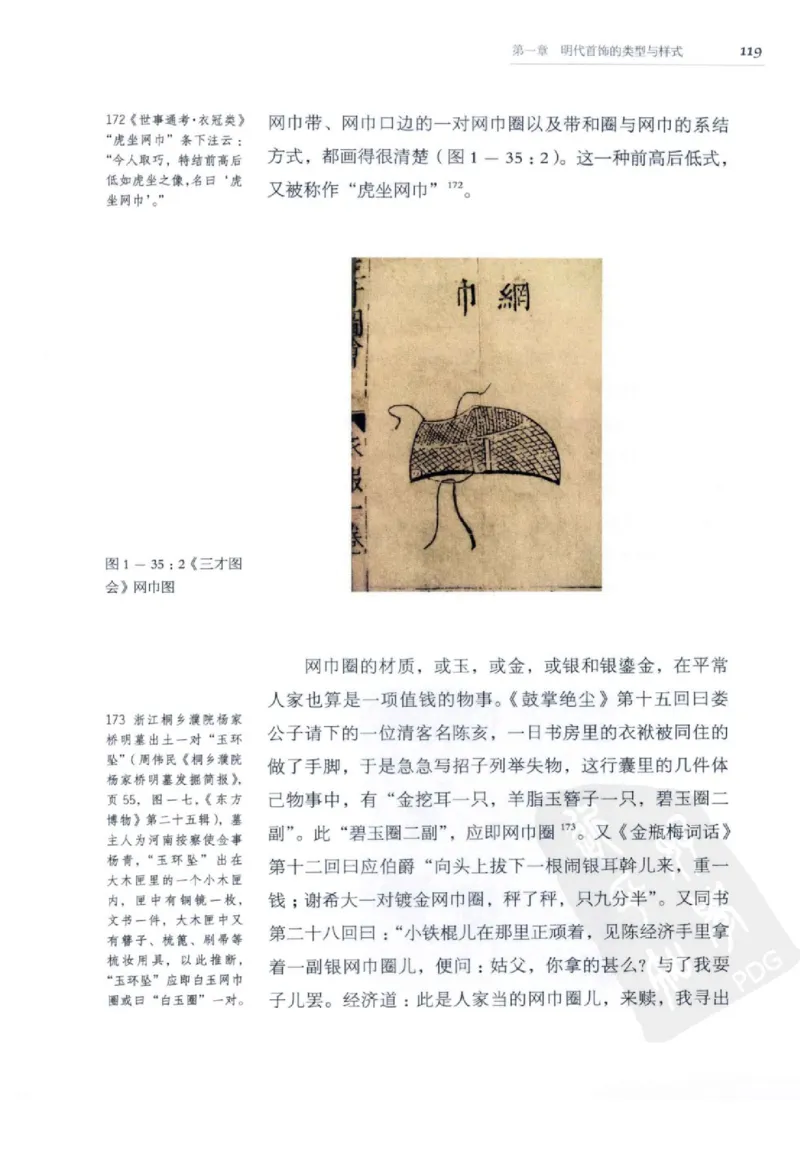 第一章 明代首饰的类型与样式 119
172《世事通考·衣冠类》
“虎坐网巾”条下注云：
“今人取巧，特结前高后
低如虎坐之像，名曰‘虎
坐网巾’。”
网巾带、网巾口边的一对网巾圈以及带和圈与网巾的系结
方式，都画得很清楚（图1—35：2）。这一种前高后低式，
又被称作“虎坐网巾”172。
巾 網
衣服一卷
图1—35：2《三才图
会》网巾图
173 浙江桐乡濮院杨家
桥明墓出土一对“玉环
坠”（周伟民《桐乡濮院
杨家桥明墓发掘简报》，
页55，图一七，《东方
博物》第二十五辑），墓
主人为河南按察使佥事
杨青，“玉环坠”出在
大木匣里的一个小木匣
内，匣中有铜镜一枚，
文书一件，大木匣中又
有簪子、梳篦、刷帚等
梳妆用具，以此推断，
“玉环坠”应即白玉网巾
圈或曰“白玉圈”一对。
网巾圈的材质，或玉，或金，或银和银鎏金，在平常
人家也算是一项值钱的物事。《鼓掌绝尘》第十五回曰娄
公子请下的一位清客名陈亥，一日书房里的衣袱被同住的
做了手脚，于是急急写招子列举失物，这行囊里的几件体
己物事中，有“金挖耳一只，羊脂玉簪子一只，碧玉圈二
副”。此“碧玉圈二副”，应即网巾圈173。又《金瓶梅词话》
第十二回曰应伯爵“向头上拔下一根闹银耳斡儿来，重一
钱；谢希大一对镀金网巾圈，秤了秤，只九分半”。又同书
第二十八回曰：“小铁棍儿在那里正顽着，见陈经济手里拿
着一副银网巾圈儿，便问：姑父，你拿的甚么？与了我耍
子儿罢。经济道：此是人家当的网巾圈儿，来赎，我寻出
PDG